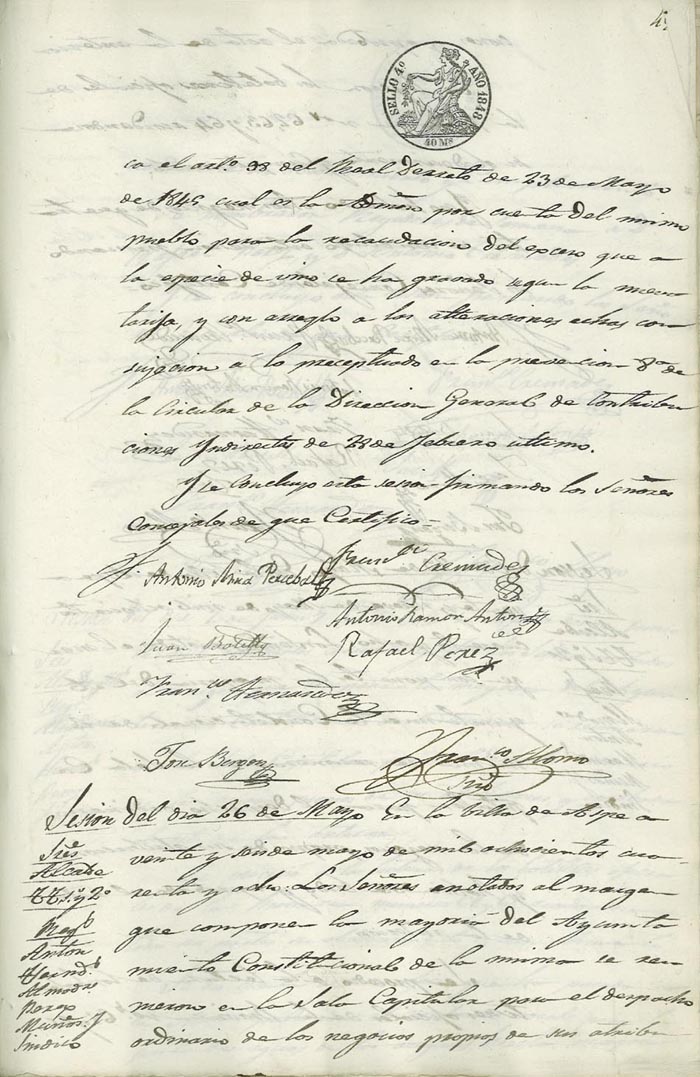 4
SELLO 4º AÑO 1848
40 Ms
ca el artº. 38 del Real Decreto de 23 de Mayo
de 1845 cual es la Admon por cuenta del mismo
pueblo para la recaudacion del exceso que a
la especie de vino se ha gravado segun la nueva
tarifa, y con arreglo a las alteraciones echas con
sujecion á lo preceptuado en la prevencion 8ª de
la Circular de la Direccion General de Contribu
ciones Yndirectas de 28 de febrero ultimo.
Y se concluyo esta sesion firmando los Señores
Concejales de que Certifico=
Antonio Mira Perceval
Franco Cremades
Antonio Ramon Anton
Juan Botella
Rafael Perez
Franco Hernandez
Jose Bergen
Franco Alonso
Srio
Sesion del dia 26 de Mayo En la Villa de Aspe a
veinte y seis de mayo de mil ochocientos cua
renta y ocho: Los Señores anotados al margen
que componen la mayoria del Ayunta
miento Constitucional de la misma se reu
nieron en la Sala Capitular para el despacho
ordinario de los negocios propios de sus atribu
Sres
Alcalde
TTs 1º y 2º
Regs
Anton
Hernds
Almodr
Perez
Muñoz y
Sindico